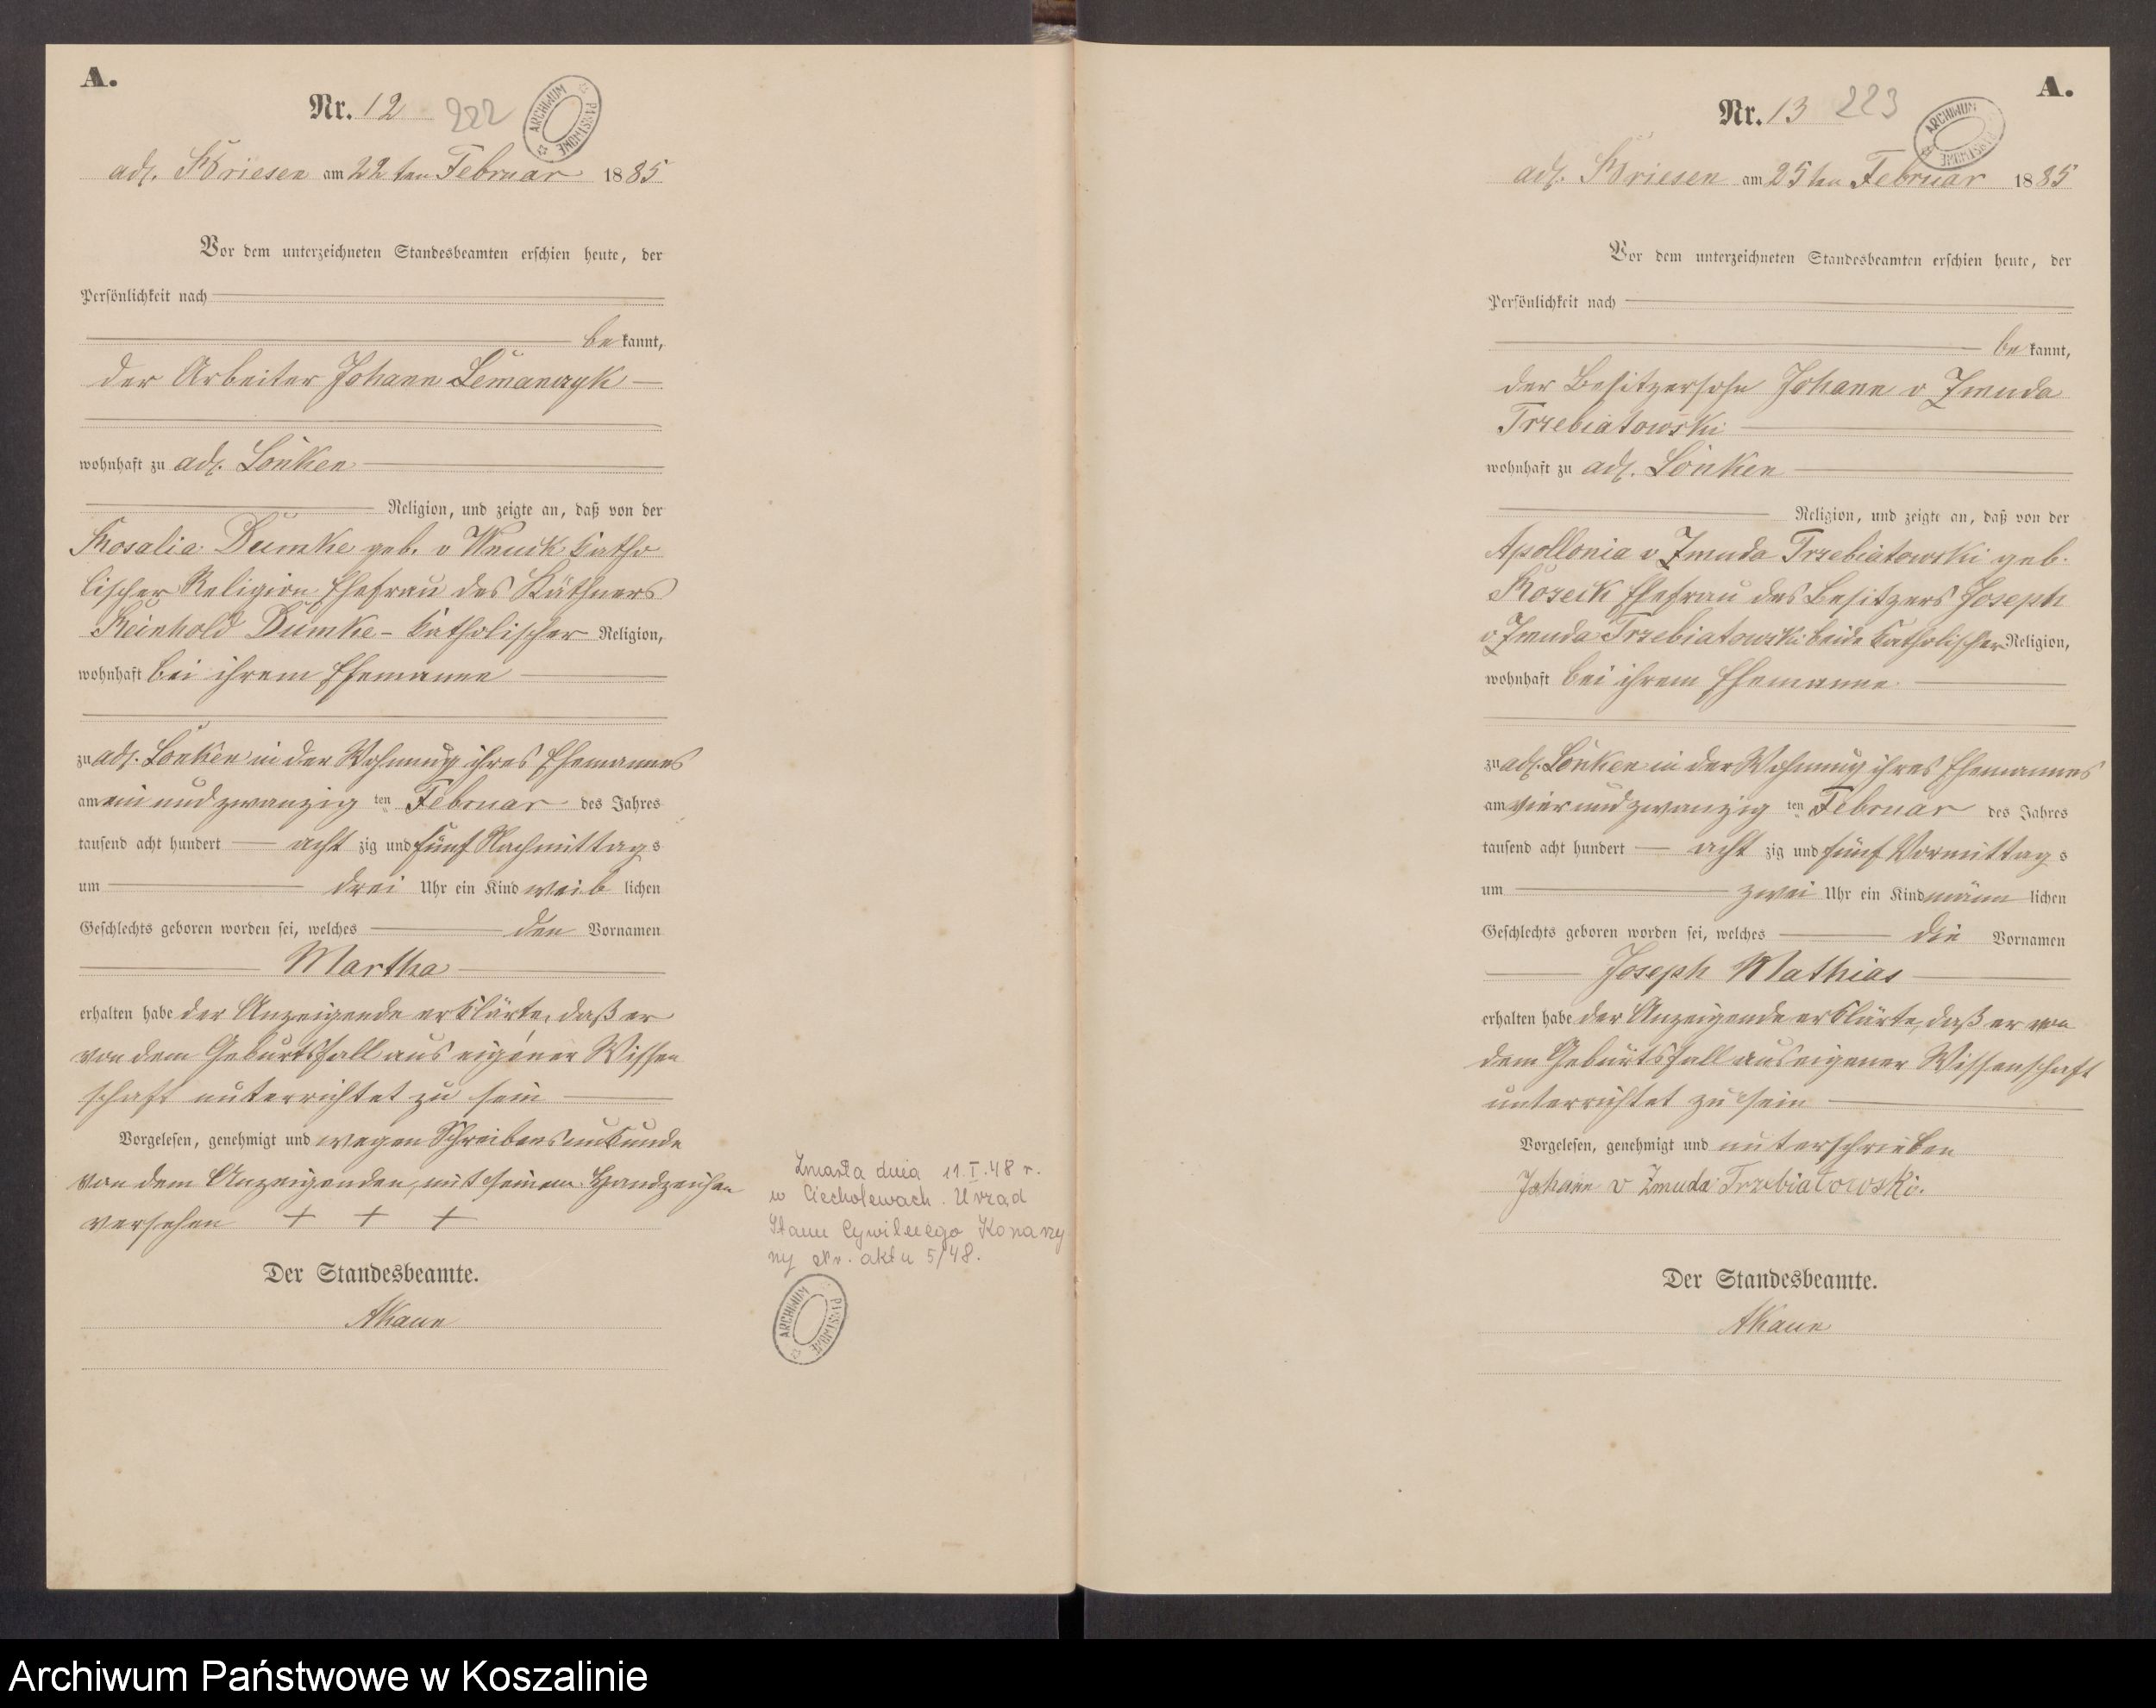 A.
Nr. 12 222
ARCHIWUM PAŃSTWOWE
adl. Briesen am 22ten Februar 1885
Vor dem unterzeichneten Standesbeamten erschien heute, der
Persönlichkeit nach
be kannt,
der Arbeiter Johann Lemanczyk
wohnhaft zu adl. Lonken
Religion, und zeigte an, daß von der
Rosalia Dumke geb. v Wnuk katho
lischer Religion Ehefrau des Käthners
Reinhold Dumke - katholischer Religion,
wohnhaft bei ihrem Ehemanne
zu adl. Lonken in der Wohnung ihres Ehemannes
am ein und zwanzig ten Februar des Jahres
tausend acht hundert acht zig und fünf Nachmittag s
um drei Uhr ein Kind weib lichen
Geschlechts geboren worden sei, welches den Vornamen
Martha
erhalten habe der Anzeigende erklärte, daß er
von dem Geburtsfall aus eigener Wissen
schaft unterrichtet zu sein
Vorgelesen, genehmigt und wegen Schreibensunkunde
von dem Anzeigenden, mit seinem Handzeichen
versehen + + +
Der Standesbeamte.
AKaun
Zmarła dnia 11.I.48 r.
w Ciecholewach. Urząd
Stanu Cywilnego Konarzy
ny Nr. aktu 5/48.
ARCHIWUM PAŃSTWOWE
A.
Nr. 13 223
ARCHIWUM PAŃSTWOWE
adl. Briesen am 25ten Februar 1885
Vor dem unterzeichneten Standesbeamten erschien heute, der
Persönlichkeit nach
be kannt,
der Besitzersohn Johann v Zmuda
Trzebiatowski
wohnhaft zu adl. Lonken
Religion, und zeigte an, daß von der
Apollonia v Zmuda Trzebiatowski geb.
Ehefrau des Besitzers Joseph
v Zmuda Trzebiatowski beide katholischer Religion,
wohnhaft bei ihrem Ehemanne
zu adl. Lonken in der Wohnung ihres Ehemannes
am vier und zwanzig ten Februar des Jahres
tausend acht hundert acht zig und fünf Vormittag s
um zwei Uhr ein Kind männ lichen
Geschlechts geboren worden sei, welches die Vornamen
Joseph Mathias
erhalten habe der Anzeigende erklärte, daß er von
dem Geburtsfall aus eigener Wissenschaft
unterrichtet zu sein
Vorgelesen, genehmigt und unterschrieben
Johann v Zmuda Trzebiatowski.
Der Standesbeamte.
AKaun
Archiwum Państwowe w Koszalinie